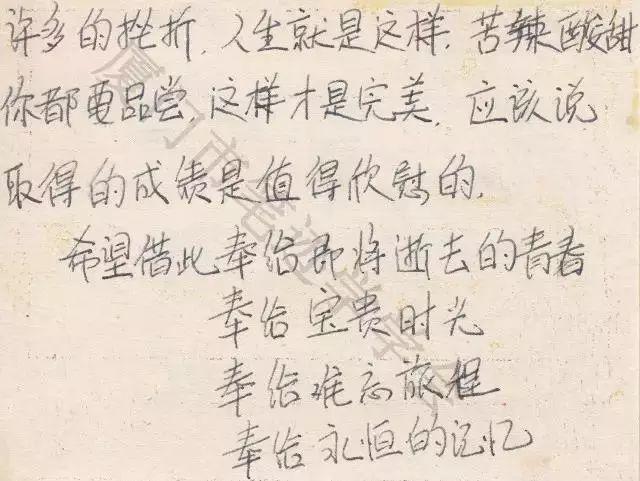 许多的挫折.人生就是这样.苦辣酸甜
你都要品尝.这样才是完美.应该说
取得的成绩是值得欣慰的.
希望借此奉给即将逝去的青春
奉给宝贵时光
奉给难忘旅程
奉给永恒的记忆
厦门市笔迹学学会